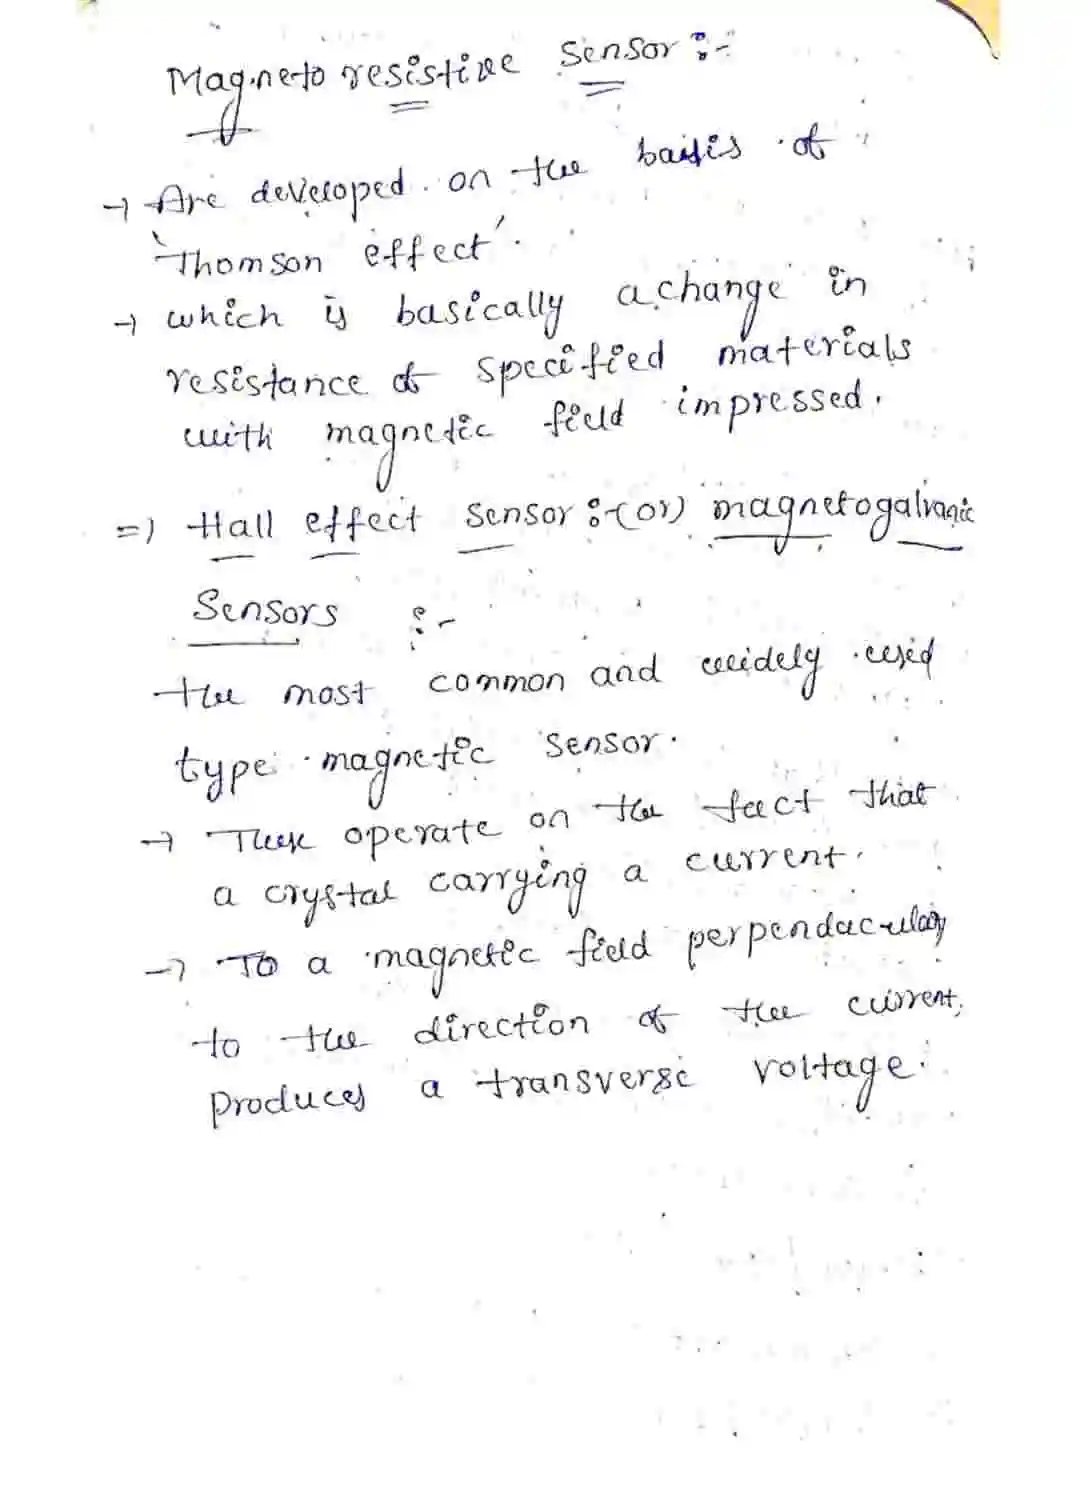 Magneto resistive Sensor :-
→ Are developed on the basis of
'Thomson effect'.
→ which is basically a change in
resistance of specified materials
with magnetic field impressed.
=) Hall effect Sensor :- (or) magnetogalvanic
Sensors :-
the most common and widely used
type magnetic sensor.
→ These operate on the fact that
a crystal carrying a current.
→ To a magnetic field perpendacular
to the direction of the current,
produces a transverse voltage.